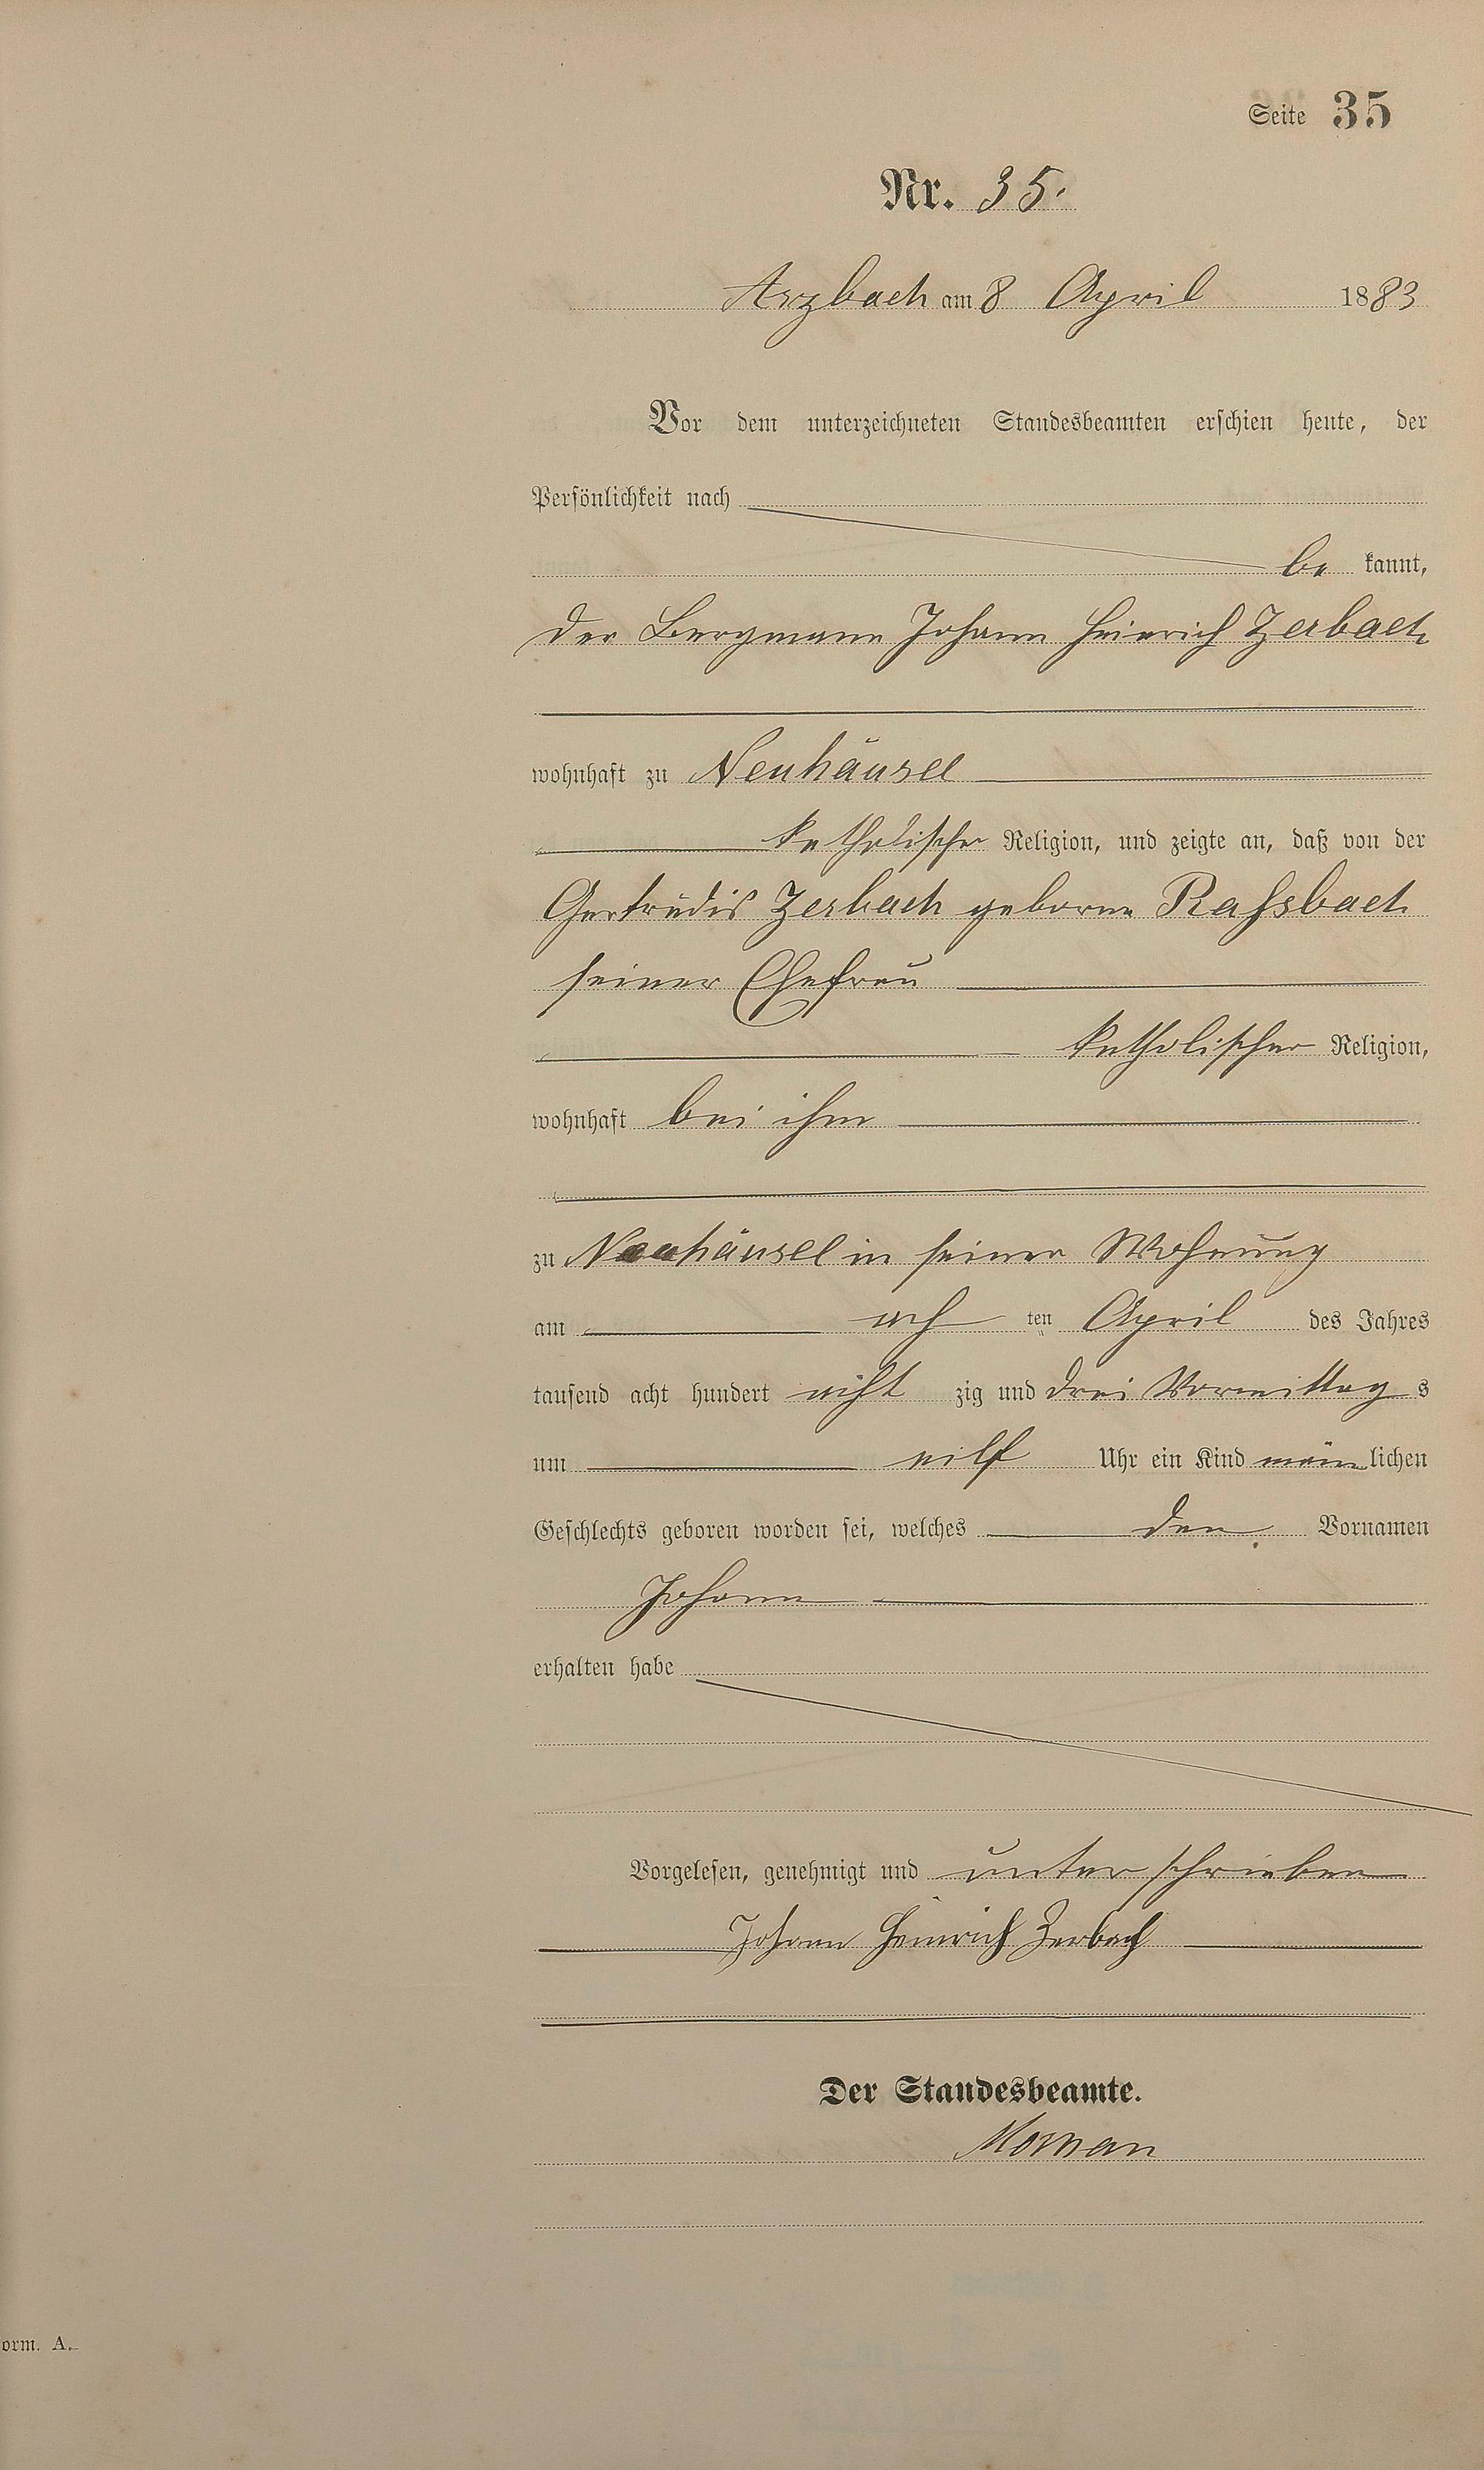 Seite 35
Nr. 35.
Arzbach am 8 April 1883
Vor dem unterzeichneten Standesbeamten erschien heute, der
Persönlichkeit nach
be kannt,
der Bergmann Johann Heinrich Zerbach
wohnhaft zu Neuhäusel
katholischer Religion, und zeigte an, daß von der
Gertrudis Zerbach geborne Rassbach
seiner Ehefrau
katholischer Religion,
wohnhaft bei ihm
zu Neuhäusel in seiner Wohnung
am ach ten April des Jahres
tausend acht hundert acht zig und drei Vormittag s
um eilf Uhr ein Kind männlichen
Geschlechts geboren worden sei, welches den Vornamen
Johann
erhalten habe
Vorgelesen, genehmigt und unterschrieben
Johann Heinrich Zerbach
Der Standesbeamte.
orm. A.